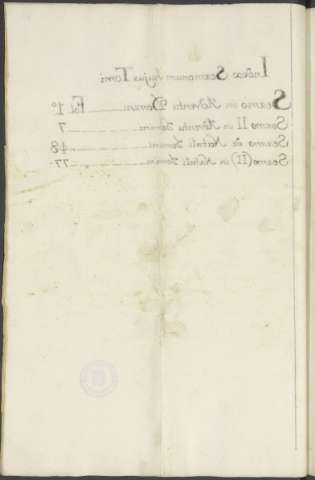 Index Sermonum hujus Tomi
Sermo in Adventu Domini Fol 1º
Sermo II in Adventu Domini 7
Sermo de Natali Domini 48
Sermo (II) in Natali Domini 77